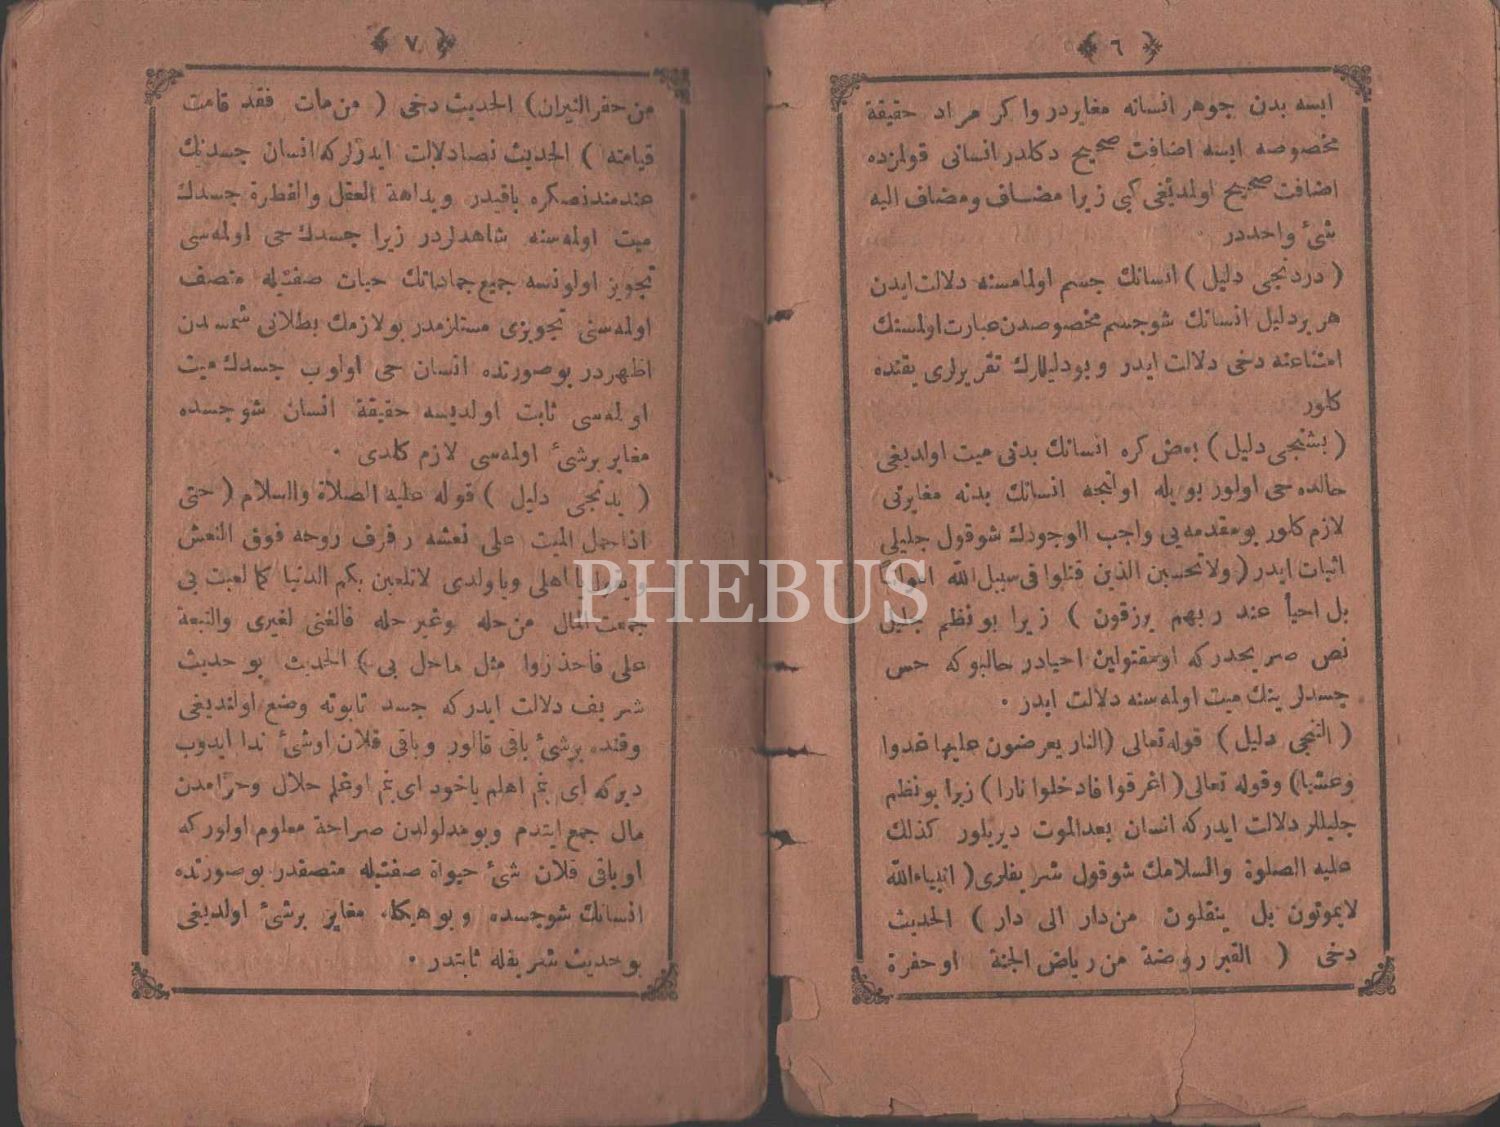 ٦
ایسه بدن جوهر انسانه مغایردر واکر مراد حقیقة
مخصوصه ایسه اضافت صحیح دکلدر انسانی قولمزده
اضافت صحیح اولمدیغی کبی زیرا مضاف و مضاف الیه
شئ واحددر
( دردنجی دلیل ) انسانك جسم اولمامسنه دلالت ایدن
هر بر دلیل انسانك شوجسم مخصوصدن عبارت اولمسنك
امتناعنه دخی دلالت ایدر و بودلیللرك تقریرلری یقنده
کلور
( بشنجی دلیل ) بعض کره انسانك بدنی میت اولدیغی
حالده حی اولور بویله اولنجه انسانك بدنه مغایرتی
لازم کلور بو مقدمه یی واجب الوجودك شو قول جلیلی
اثبات ایدر ( ولا تحسبن الذین قتلوا فی سبیل الله امواتا
بل احیأ عند ربهم یرزقون ) زیرا بو نظم جلیل
نص صریحدرکه او مقتولین احیادر حالبوکه حس
جسدلرینك میت اولمه سنه دلالت ایدر ۰
( التنجی دلیل ) قوله تعالی ( النار یعرضون علیها غدوا
وعشیا) وقوله تعالی ( اغرقوا فادخلوا نارا ) زیرا بو نظم
جلیللر دلالت ایدرکه انسان بعد الموت دیریلور کذلك
علیه الصلوة والسلامك شو قول شریفلری ( انبیاءالله
لایموتون بل ینقلون من دار الی دار ) الحدیث
دخی ( القبر روضة من ریاض الجنة او حفرة
٧
من حفر النیران) الحدیث دخی ( من مات فقد قامت
قیامته ) الحدیث نصا دلالت ایدرلرکه انسان جسدنك
عندمندنصکره باقیدر و بداهة العقل والفطرة جسدك
میت اولمه سنه شاهدلردر زیرا جسدك حی اولمه سی
تجویز اولونسه جمیع جماداتك حیات صفتیله متصف
اولمه سنی تجویزی مستلزمدر بو لازمك بطلانی شمسدن
اظهردر بو صورتده انسان حی اولوب جسدك میت
اولمه سی ثابت اولدیسه حقیقة انسان شو جسده
مغایر برشئ اولمه سی لازم کلدی ۰
( یدنجی دلیل ) قوله علیه الصلاة والسلام ( حتی
اذا حمل المیت علی نعشه رفرف روحه فوق النعش
و یقول یا اهلی ویا ولدی لاتلعبن بکم الدنیا کما لعبت بی
جمعت المال من حله وغیر حله فالغنی لغیری والتبعة
علی فاحذروا مثل ماحل بی ) الحدیث بو حدیث
شریف دلالت ایدرکه جسد تابوته وضع اولندیغی
وقتده برشئ باقی قالور و باقی قلان اوشئ ندا ایدوب
دیرکه ای بنم اهلم یاخود ای بنم اوغلم حلال وحرامدن
مال جمع ایتدم و بو مدلولدن صراحة معلوم اولورکه
او باقی قلان شئ حیوة صفتیله متصفدر بو صورتده
انسانك شو جسده و بو هیکله مغایر برشئ اولدیغی
بو حدیث شریفله ثابتدر ۰
PHEBUS